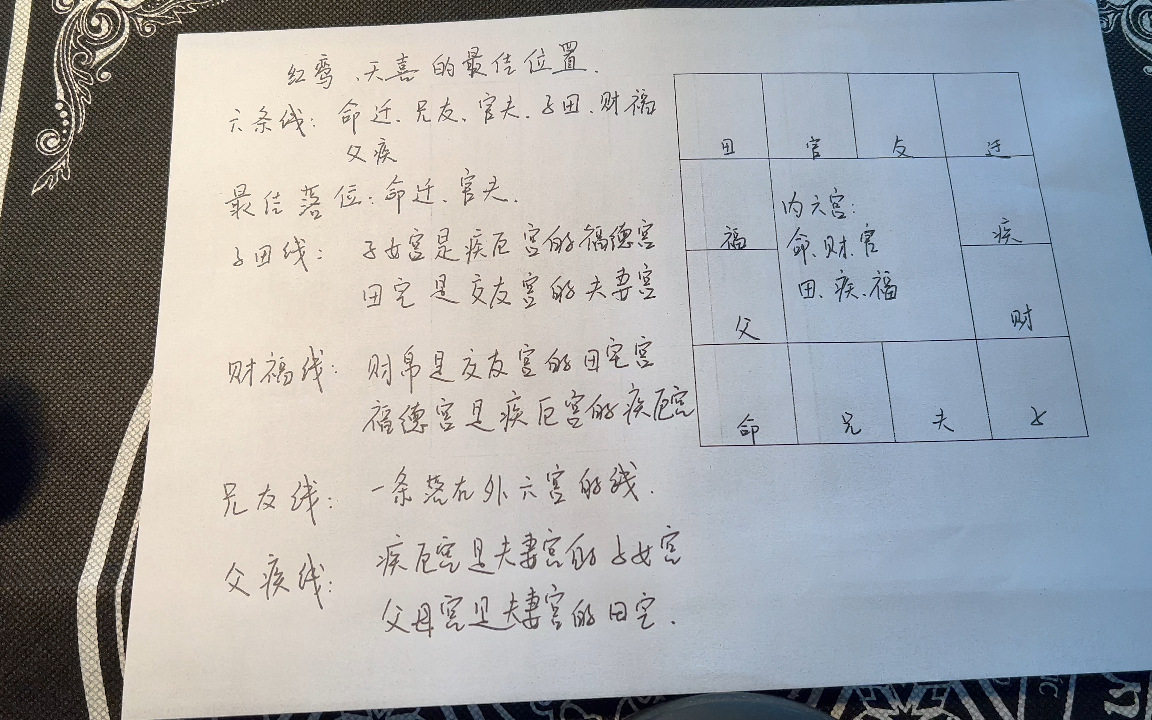 红鸾、天喜的最佳位置.
六条线: 命迁、兄友、官夫、子田、财福
父疾
最佳落位: 命迁、官夫.
子田线: 子女宫是疾厄宫的福德宫
田宅是交友宫的夫妻宫
财福线: 财帛是交友宫的田宅宫
福德宫是疾厄宫的疾厄宫
兄友线: 一条落在外六宫的线.
父疾线: 疾厄宫是夫妻宫的子女宫
父母宫是夫妻宫的田宅.
田 官 友 迁
福 疾
父 财
命 兄 夫 子
内六宫:
命、财、官
田、疾、福